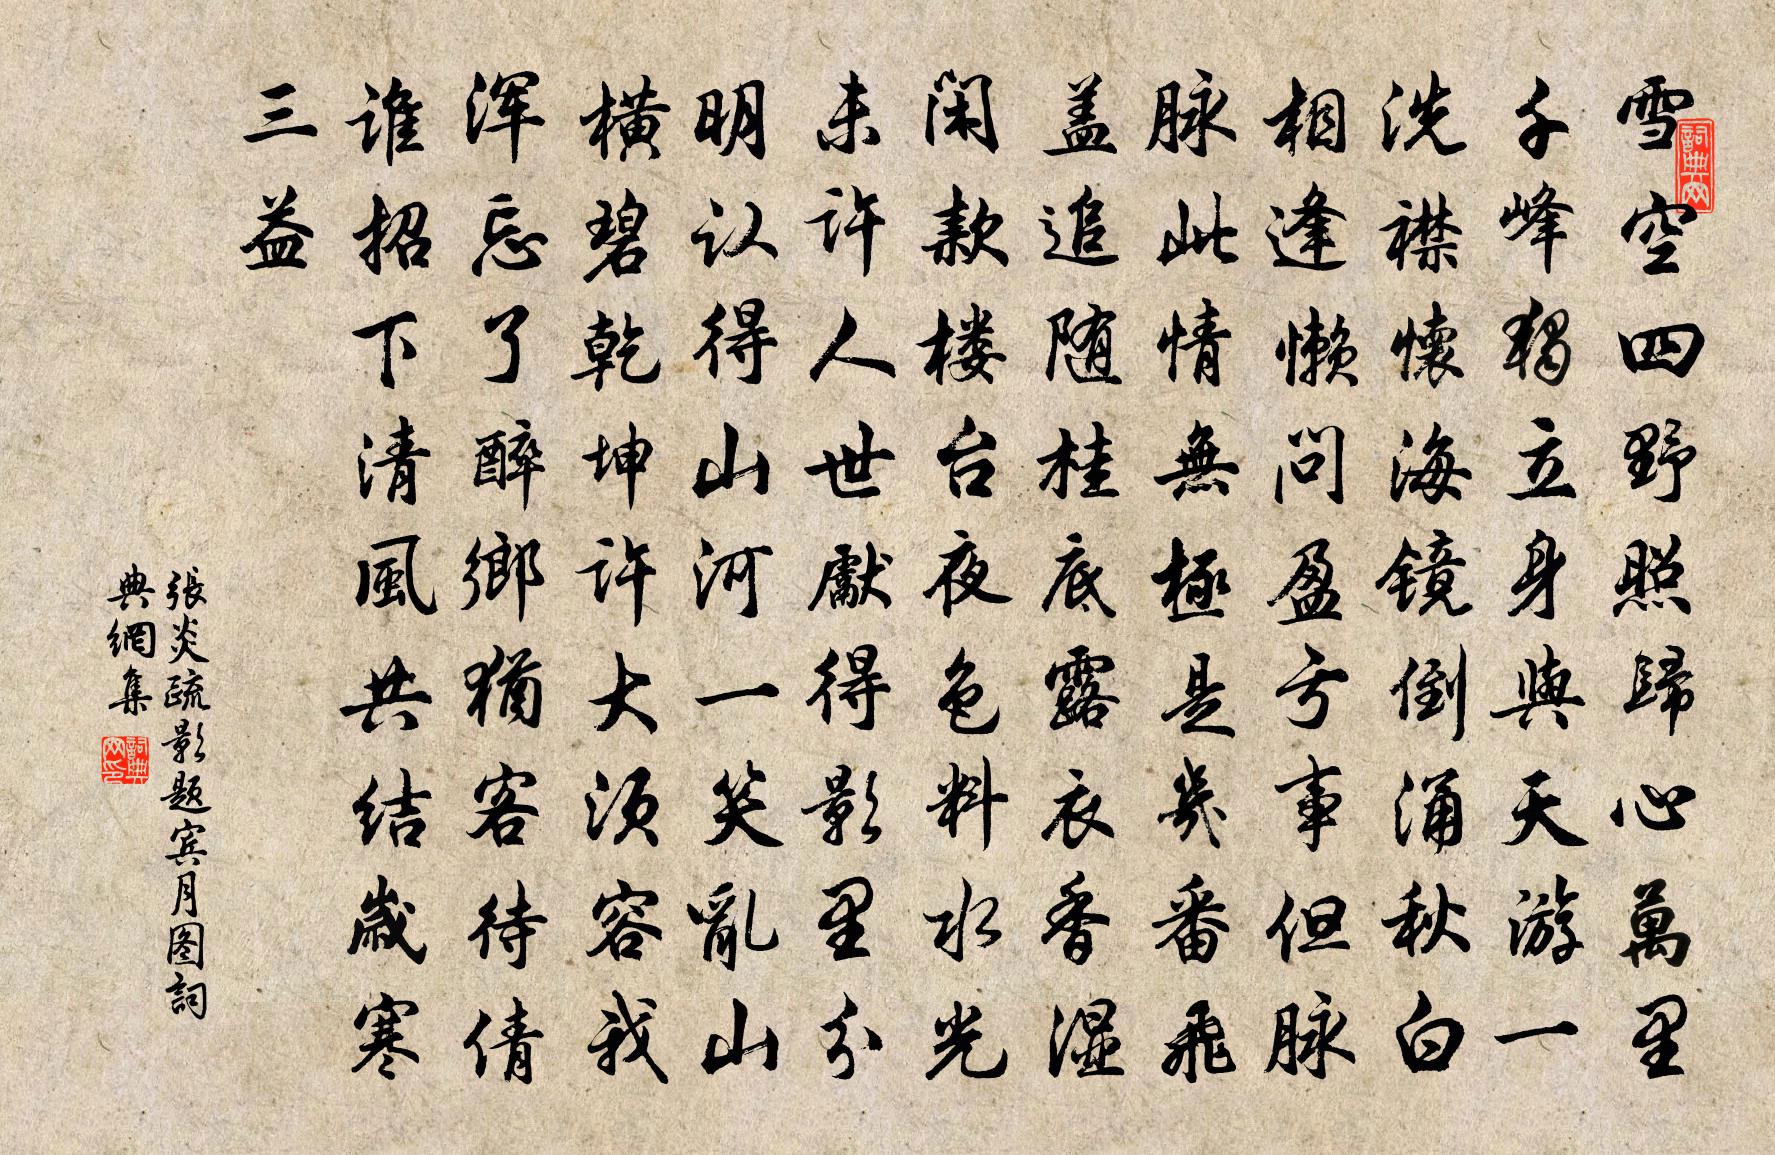 雪空四野照歸心萬里
千峰獨立身與天游一
洗襟懷海镜倒涌秋白
相逢懒問盈亏事但脉
脉此情無極是幾番飛
盖追随桂底露衣香湿
闲款楼台夜色料水光
未许人世獻得影里分
明认得山河一笑亂山
横碧乾坤许大须容我
浑忘了醉鄉猶客待倩
谁招下清風共结歲寒
三益
張炎疏影题宾月图詞
典網集
詞典网
詞典网印